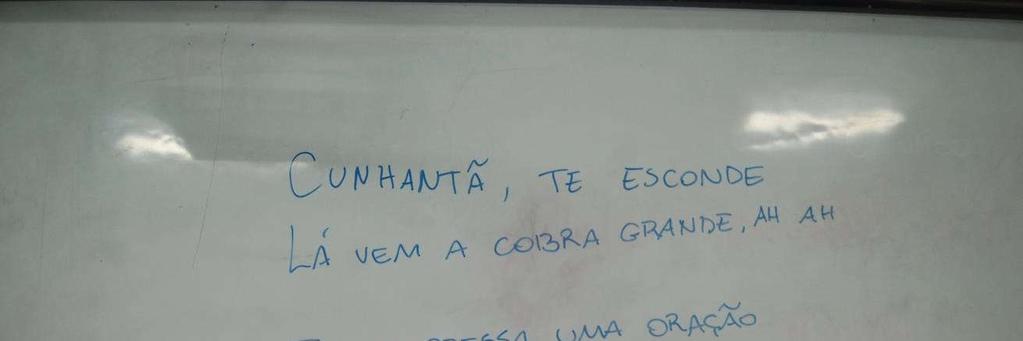 CUNHANTÃ, TE ESCONDE
LÁ VEM A COBRA GRANDE, AH AH
UMA ORAÇÃO